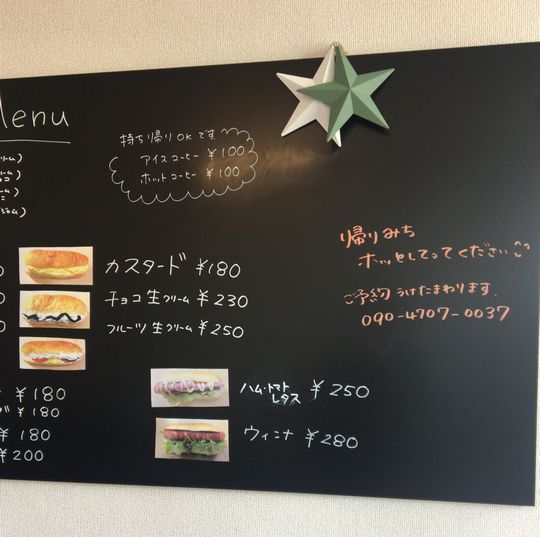 Menu
リーム)
ーム)
ジャム)
持ち帰りOKです
アイスコーヒー ¥100
ホットコーヒー ¥100
帰りみち
ホッとしてってください
ご予約うけたまわります。
090-4707-0037
カスタード ¥180
チョコ生クリーム ¥230
フルーツ生クリーム ¥250
¥180
¥180
¥180
¥200
ハム・トマト
レタス ¥250
ウィンナ ¥280